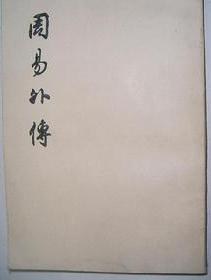 周易外傳